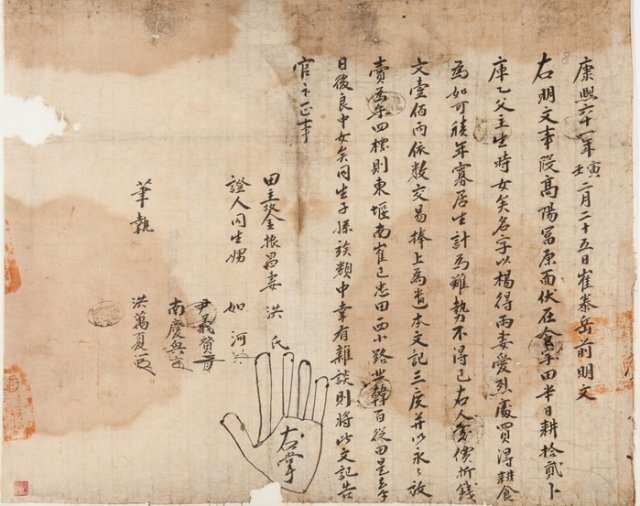 康熙六十一年壬寅二月二十五日崔泰岳前明文
右明文事段高陽富原面伏在字田半日耕拾貳卜
庫乙父主生時女矣名字以楊得雨妻愛烈處買得耕食
為如可積年寡居生計為難勢不得已右人處價折錢
文壹佰兩依數交易捧上為遣本文記三度并以永々放
賣為乎四標則東堰南崔已忠田西小路北韓百從田是乎
日後良中女矣同生子孫族類中幸有雜談則將此文記告
官卞正事
田主故金振昌妻 洪氏
右掌
證人同生甥 如河
尹義賛
南慶興
筆執 洪萬夏